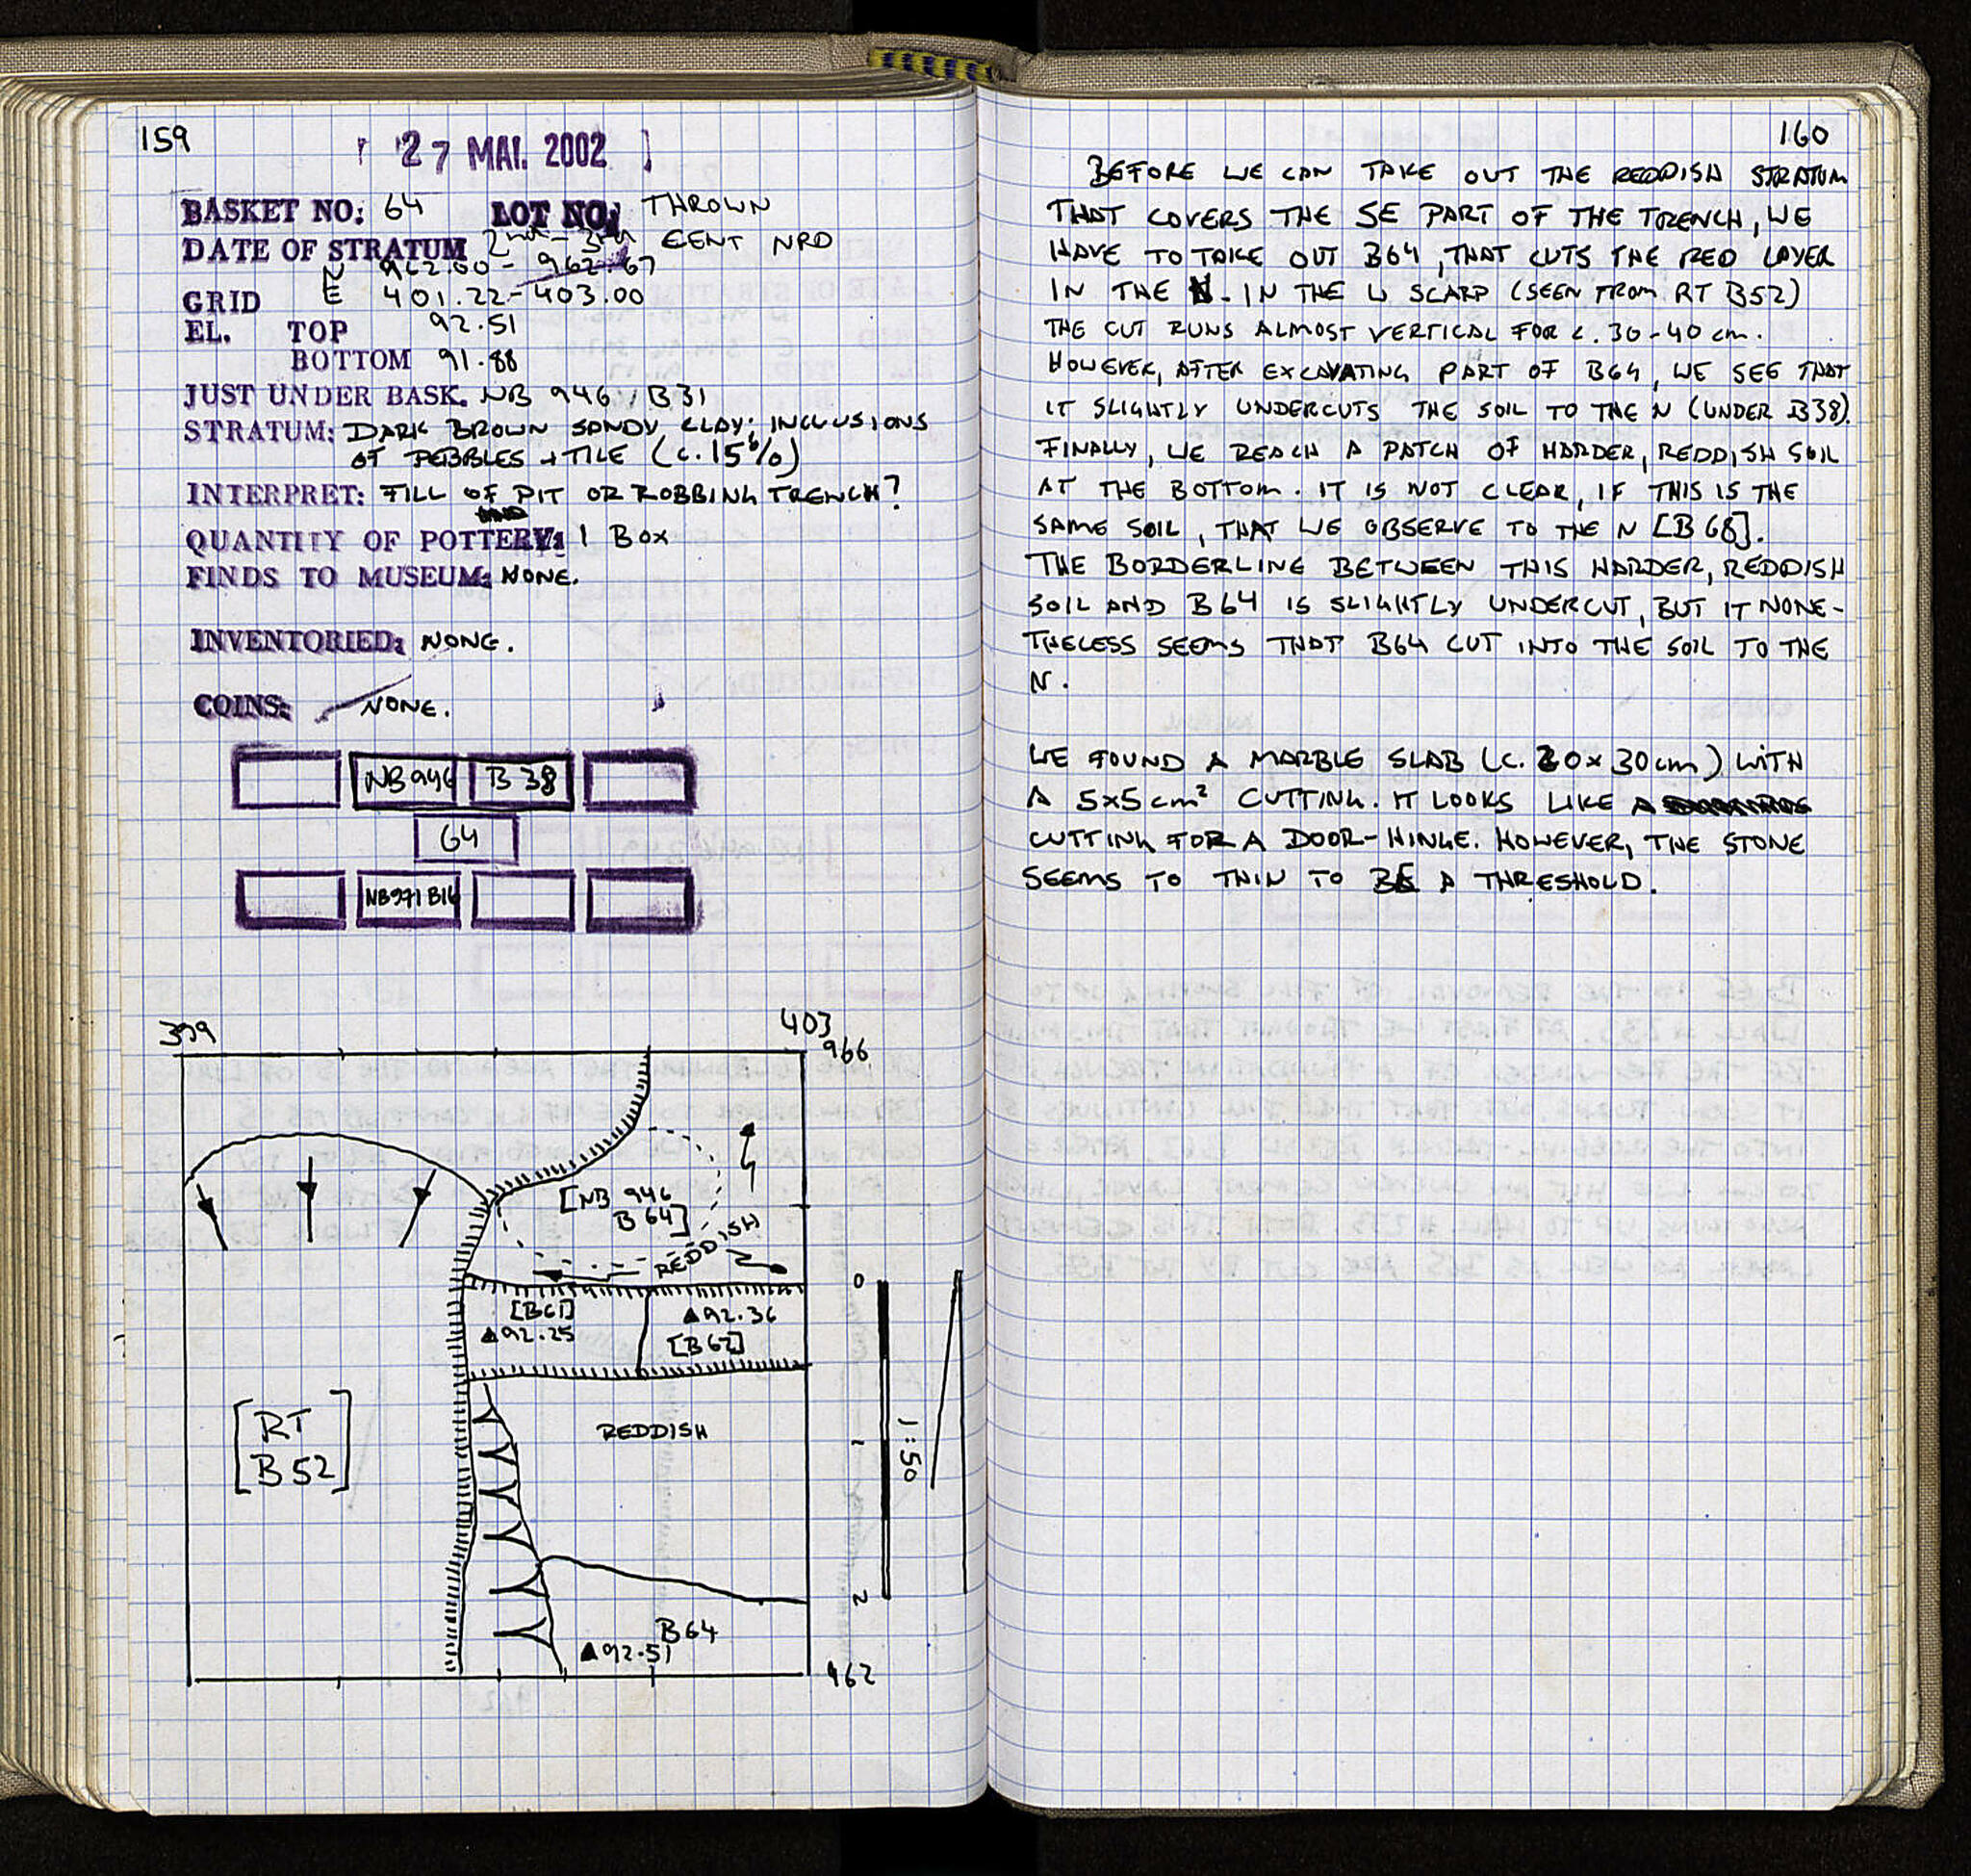 159
27 MAI. 2002
BASKET NO: 64 LOT NO: THROWN
DATE OF STRATUM 2nd - 3rd CENT NRD
N 962.00 - 962.67
GRID E 401.22 - 403.00
EL. TOP 92.51
BOTTOM 91.88
JUST UNDER BASK. NB 946 / B31
STRATUM: DARK BROWN SANDY CLAY; INCLUSIONS
OF PEBBLES + TILE (c. 15%)
INTERPRET: FILL OF PIT OR ROBBING TRENCH?
QUANTITY OF POTTERY: 1 BOX
FINDS TO MUSEUM: NONE.
INVENTORIED: NONE.
COINS: NONE.
NB 946 B 38
64
NB971 B16
399 403
966
[NB 946
B 64]
REDDISH
0
[B61] ▲92.36
▲92.25 [B62]
[RT
B 52]
REDDISH
1
1:50
2
B 64
▲92.51
962
160
BEFORE WE CAN TAKE OUT THE REDDISH STRATUM
THAT COVERS THE SE PART OF THE TRENCH, WE
HAVE TO TAKE OUT B64, THAT CUTS THE RED LAYER
IN THE N. IN THE W SCARP (SEEN FROM RT B52)
THE CUT RUNS ALMOST VERTICAL FOR c. 30-40 cm.
HOWEVER, AFTER EXCAVATING PART OF B64, WE SEE THAT
IT SLIGHTLY UNDERCUTS THE SOIL TO THE N (UNDER B38).
FINALLY, WE REACH A PATCH OF HARDER, REDDISH SOIL
AT THE BOTTOM. IT IS NOT CLEAR, IF THIS IS THE
SAME SOIL, THAT WE OBSERVE TO THE N [B 68].
THE BORDERLINE BETWEEN THIS HARDER, REDDISH
SOIL AND B64 IS SLIGHTLY UNDERCUT, BUT IT NONE-
THELESS SEEMS THAT B64 CUT INTO THE SOIL TO THE
N.
WE FOUND A MARBLE SLAB (c. 20 x 30 cm) WITH
A 5x5 cm² CUTTING. IT LOOKS LIKE A
CUTTING FOR A DOOR-HINGE. HOWEVER, THE STONE
SEEMS TO THIN TO BE A THRESHOLD.